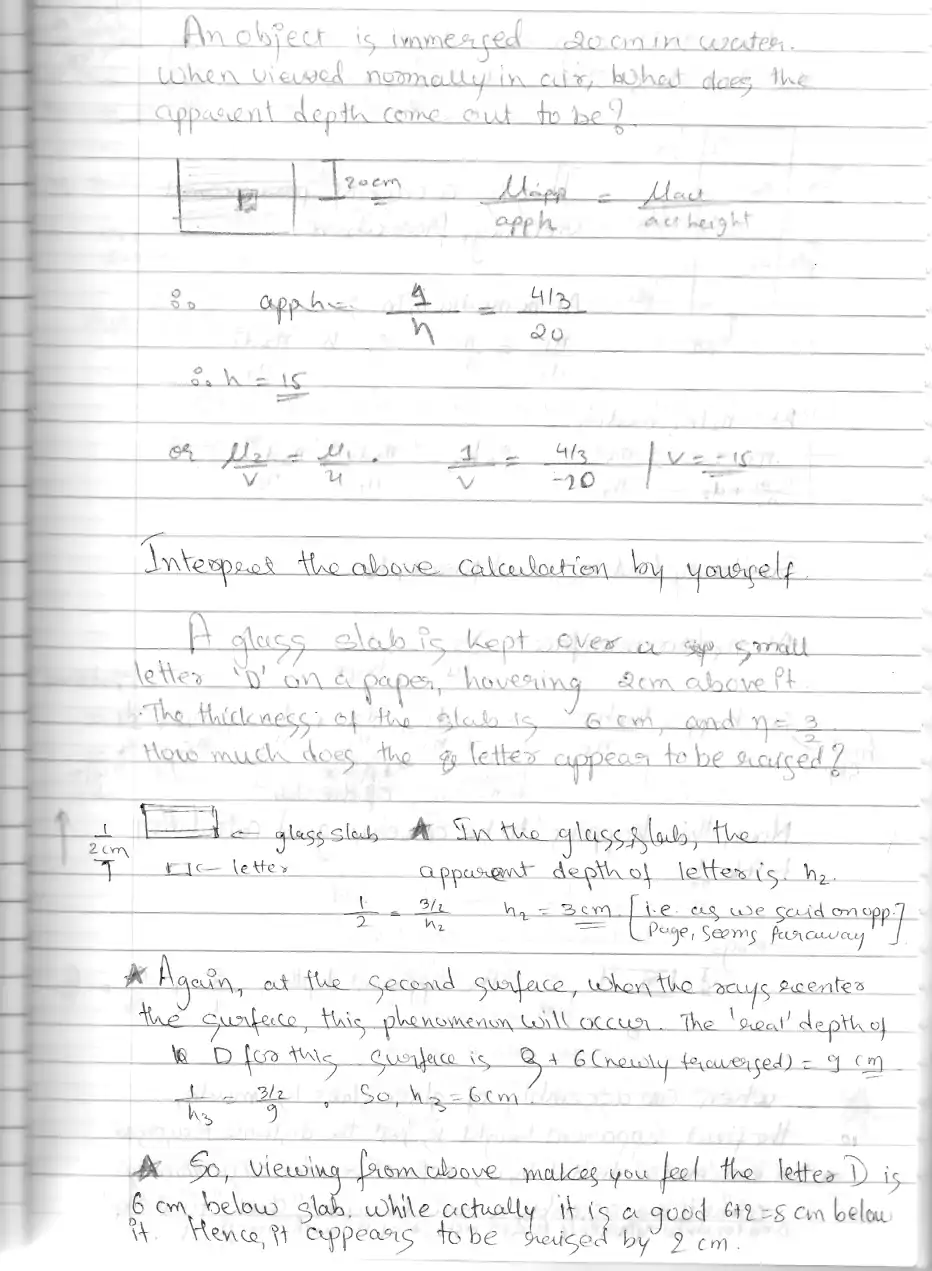 An object is immersed 20 cm in water.
When viewed normally in air, what does the
apparent depth come out to be?
20cm
μapp / app h = μact / act height
∴ app h = 1/h = 4/3 / 20
∴ h = 15
or μ2/v = μ1/u . 1/v = 4/3 / -20 | v = -15
Interpret the above calculation by yourself.
A glass slab is kept over a small
letter 'D' on a paper, hovering 2cm above it
The thickness of the slab is 6 cm, and η = 3/2
How much does the letter appear to be raised?
2cm
← glass slab
← letter
★ In the glass slab, the
apparent depth of letter is h2.
1/2 = 3/2 / h2 h2 = 3cm [i.e. as we said on opp. page, seems "faraway"]
★ Again, at the second surface, when the rays reenter
the surface, this phenomenon will occur. The 'real' depth of
D for this surface is 3 + 6 (newly traversed) = 9 cm
1/h3 = 3/2 / 9 . So, h3 = 6cm.
★ So, viewing from above makes you feel the letter D is
6 cm below slab, while actually it is a good 6+2=8 cm below
it. Hence, it appears to be raised by 2 cm.